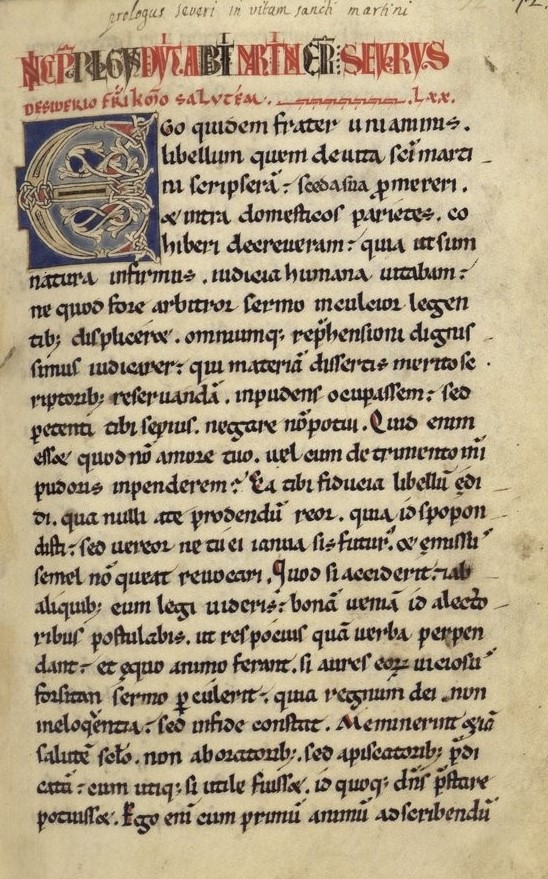 prologus severi in vitam sancti martini
DESIDERIO FR̄I KO̅O SALVTĒM. .Lxx.
Ego quidem frater unianimis.
libellum quem de uita sc̄i marti
ni scripserā: scedasua p̱mereri.
& intra domesticos parietes. co
hiberi decreueram: quia ut sum
natura infirmus. iudicia humana uitabam:
ne quod fore arbitror sermo incultior legen
tib; displiceret. omniumq; rep̄hensioni dignis
simus iudicarer: qui materiā dissertis merito sc
riptorib; reseruandā. inpudens ocupassem: sed
petenti tibi sepius. negare nō potui. Quid enim
ess& quod nō amore tuo. uel cum detrimento mī
pudoris inpenderem: Ea tibi fiducia libellū ędi
di. qua nulli a te prodendū reor. quia id spopon
disti: sed uereor ne tu ei ianua sis futur'. & emissu'
semel nō queat reuocari. Quod si acciderit: & ab
aliquib; eum legi uideris: bonā ueniā id a lecto
ribus postulabis. ut res pocius quā uerba perpen
dant: et ęquo animo ferant. si aures eoꝝ uiciosu'
forsitan sermo p̱culerit: quia regnum dei non
in eloq̄entia: sed in fide constat. Meminerint &iā
salutē sc̄lo. non ab oratorib;. sed a piscatorib; p̄di
catā: cum utiq; si utile fuiss&. id quoq; dn̄s p̄stare
potuiss&. Ego enī cum primū animū ad scribendū